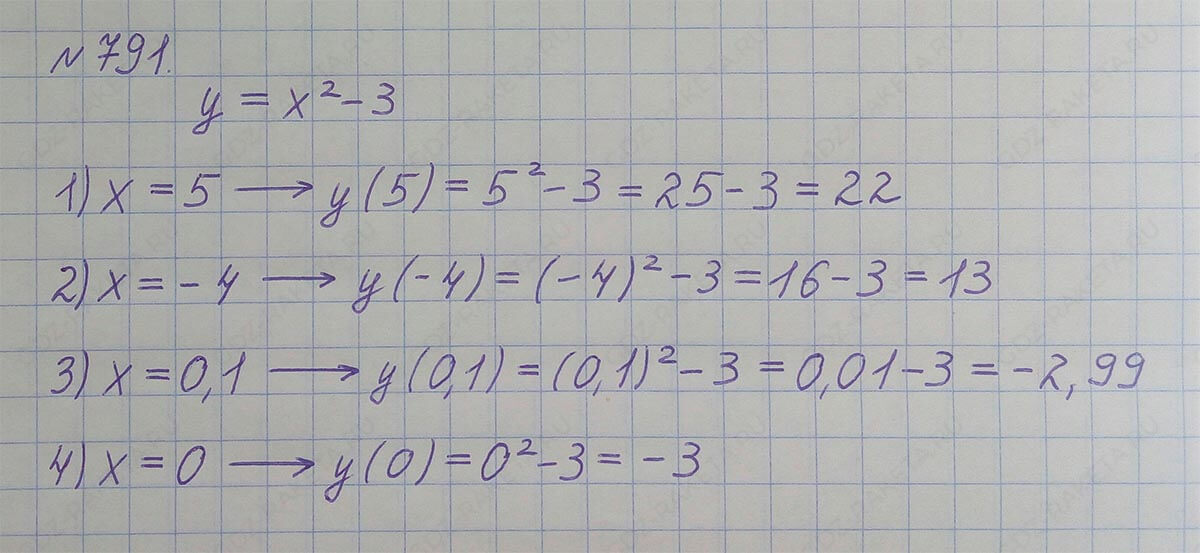 № 791.
y = x² - 3
1) x = 5 ⟶ y(5) = 5² - 3 = 25 - 3 = 22
2) x = - 4 ⟶ y(-4) = (-4)² - 3 = 16 - 3 = 13
3) x = 0,1 ⟶ y(0,1) = (0,1)² - 3 = 0,01 - 3 = -2,99
4) x = 0 ⟶ y(0) = 0² - 3 = -3